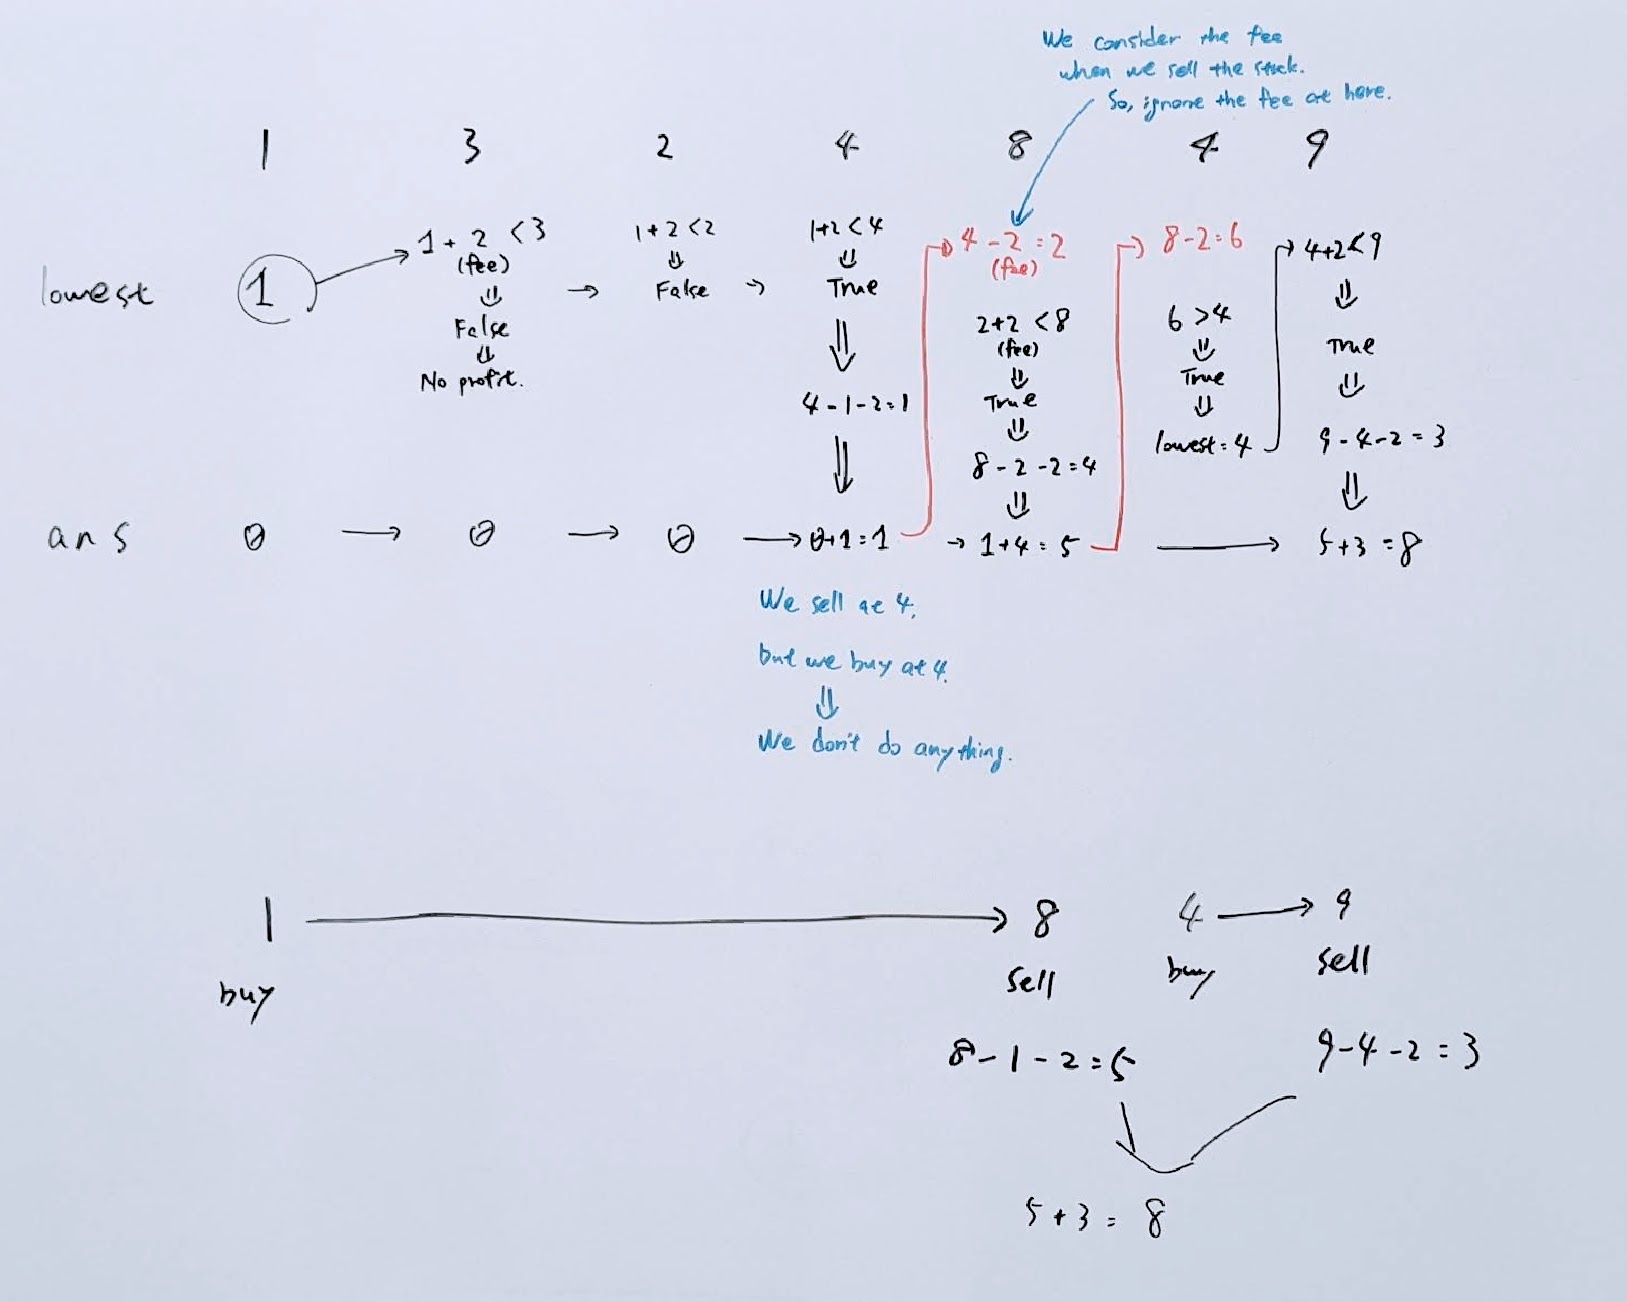 We consider the fee
when we sell the stock.
So, ignore the fee at here.
1 3 2 4 8 4 9
lowest
1
1 + 2 < 3
(fee)
⇓
False
⇓
No profit.
→
1 + 2 < 2
⇓
False
→
1+2 < 4
⇓
True
⇓
4 - 1 - 2 = 1
⇓
4 - 2 = 2
(fee)
2+2 < 8
(fee)
⇓
True
⇓
8 - 2 - 2 = 4
⇓
8 - 2 = 6
6 > 4
⇓
True
⇓
lowest = 4
4+2 < 9
⇓
True
⇓
9 - 4 - 2 = 3
⇓
ans 0 → 0 → 0 → 0+1 = 1 → 1+4 = 5 → 5+3 = 8
We sell at 4,
but we buy at 4.
⇓
We don't do anything.
1 → 8 4 → 9
buy sell buy sell
8 - 1 - 2 = 5 9 - 4 - 2 = 3
5 + 3 = 8